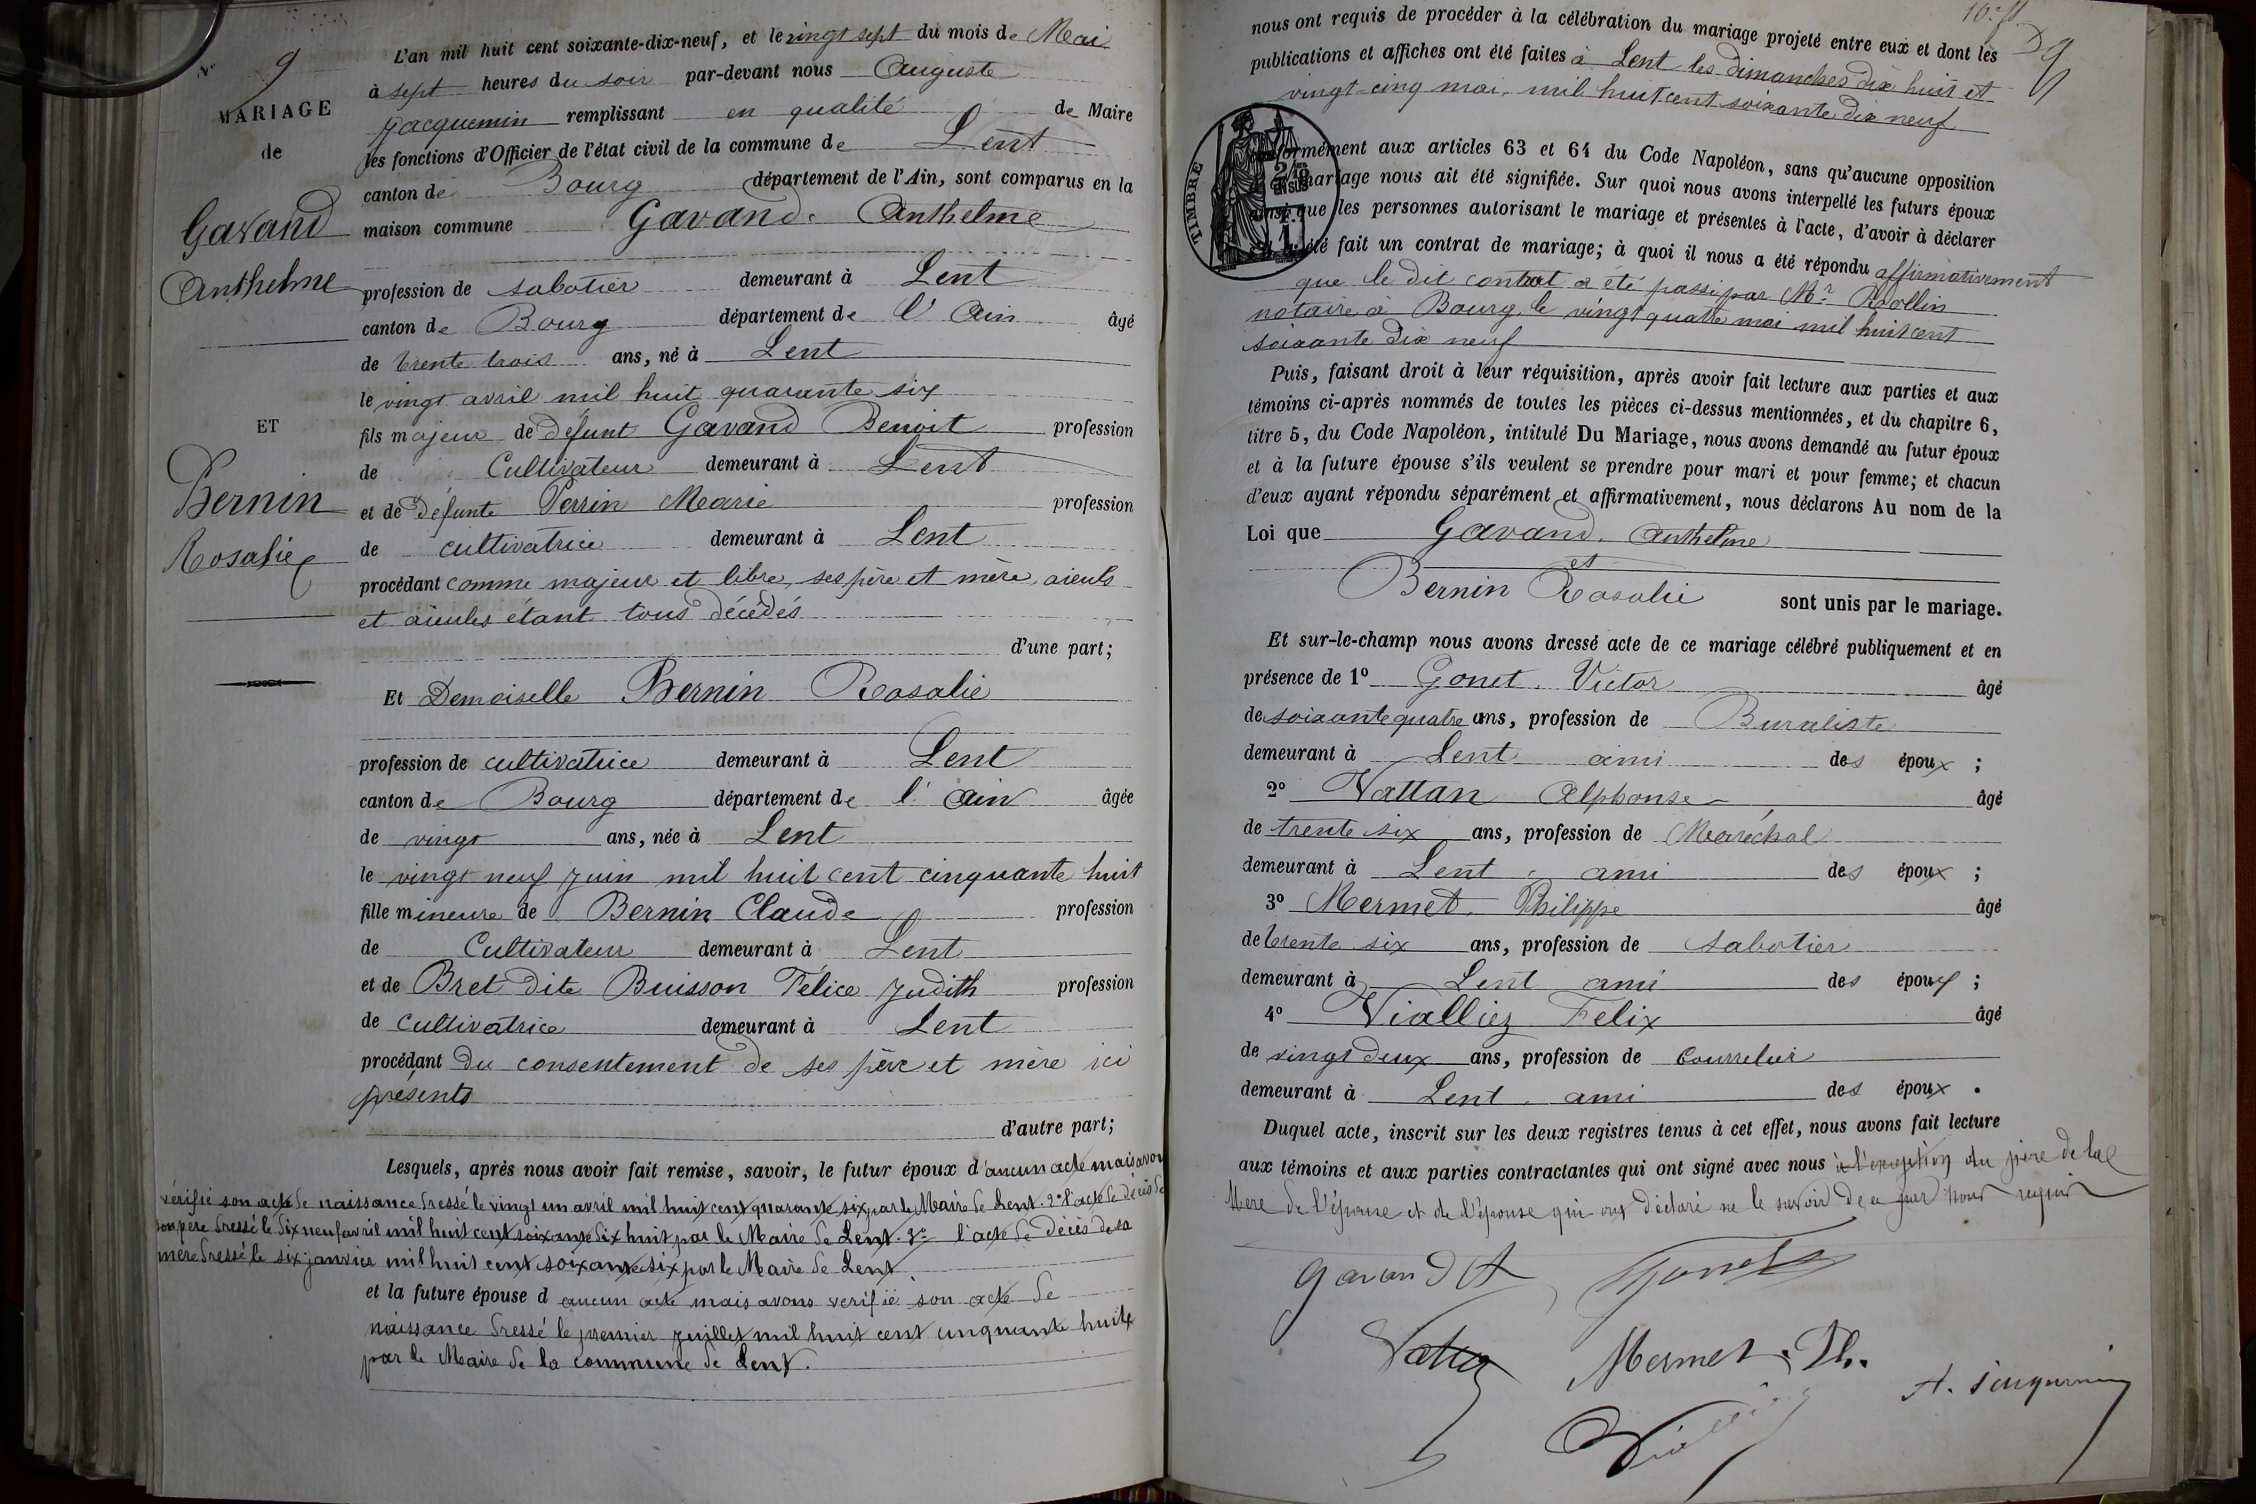 N° 9
MARIAGE
de
Gavand
Anthelme
ET
Bernin
Rosalie
L'an mil huit cent soixante-dix-neuf, et le vingt sept du mois de Mai
à sept heures du soir par-devant nous Auguste
Jacquemin remplissant en qualité de Maire
les fonctions d'Officier de l'état civil de la commune de Lent
canton de Bourg département de l'Ain, sont comparus en la
maison commune Gavand Anthelme
profession de sabotier demeurant à Lent
canton de Bourg département de l'Ain âgé
de trente trois ans, né à Lent
le vingt avril mil huit quarante six
fils majeur de défunt Gavand Benoit profession
de Cultivateur demeurant à Lent
et de défunte Perrin Marie profession
de cultivatrice demeurant à Lent
procédant comme majeur et libre, ses père et mère, aieuls
et aieules étant tous décédés
d'une part;
Et Demoiselle Bernin Rosalie
profession de cultivatrice demeurant à Lent
canton de Bourg département de l'Ain âgée
de vingt ans, née à Lent
le vingt neuf Juin mil huit cent cinquante huit
fille mineure de Bernin Claude profession
de Cultivateur demeurant à Lent
et de Bret dite Buisson Félice Judith profession
de cultivatrice demeurant à Lent
procédant du consentement de ses père et mère ici
présents
d'autre part;
Lesquels, après nous avoir fait remise, savoir, le futur époux d'aucun acte mais avons
vérifié son acte de naissance dressé le vingt un avril mil huit cent quarante six par le Maire de Lent. 2° l'acte de décès de
son père dressé le dix neuf avril mil huit cent soixante dix huit par le Maire de Lent. 3° l'acte de décès de sa
mère dressé le six janvier mil huit cent soixante six par le Maire de Lent.
et la future épouse d'aucun acte mais avons verifié son acte de
naissance dressé le premier Juillet mil huit cent cinquante huit
par le Maire de la commune de Lent.
nous ont requis de procéder à la célébration du mariage projeté entre eux et dont les
publications et affiches ont été faites à Lent les dimanches dix huit et
vingt-cinq mai, mil huit cent soixante dix neuf
TIMBRE
2/10 EN SUS
conformément aux articles 63 et 64 du Code Napoléon, sans qu'aucune opposition
mariage nous ait été signifiée. Sur quoi nous avons interpellé les futurs époux
ainsi que les personnes autorisant le mariage et présentes à l'acte, d'avoir à déclarer
été fait un contrat de mariage; à quoi il nous a été répondu affirmativement
que le dit contrat a été passé par Mr. Rollin
notaire à Bourg le vingt quatre mai mil huit cent
soixante dix neuf
Puis, faisant droit à leur réquisition, après avoir fait lecture aux parties et aux
témoins ci-après nommés de toutes les pièces ci-dessus mentionnées, et du chapitre 6,
titre 5, du Code Napoléon, intitulé Du Mariage, nous avons demandé au futur époux
et à la future épouse s'ils veulent se prendre pour mari et pour femme; et chacun
d'eux ayant répondu séparément et affirmativement, nous déclarons Au nom de la
Loi que Gavand Anthelme
et
Bernin Rosalie sont unis par le mariage.
Et sur-le-champ nous avons dressé acte de ce mariage célébré publiquement et en
présence de 1° Gonet Victor âgé
de soixante quatre ans, profession de Buraliste
demeurant à Lent ami des époux ;
2° Vattan Alphonse âgé
de trente six ans, profession de Maréchal
demeurant à Lent ami des époux ;
3° Mermet Philippe âgé
de trente six ans, profession de sabotier
demeurant à Lent ami des époux ;
4° Vialliez Felix âgé
de vingt deux ans, profession de bourrelier
demeurant à Lent ami des époux .
Duquel acte, inscrit sur les deux registres tenus à cet effet, nous avons fait lecture
aux témoins et aux parties contractantes qui ont signé avec nous à l'exception du père de la
Mere de l'épouse et de l'épouse qui ont déclaré ne le savoir de ce par nous requis
Gavand A Gonet
Vattan Mermet Ph.
A. Jacquemin